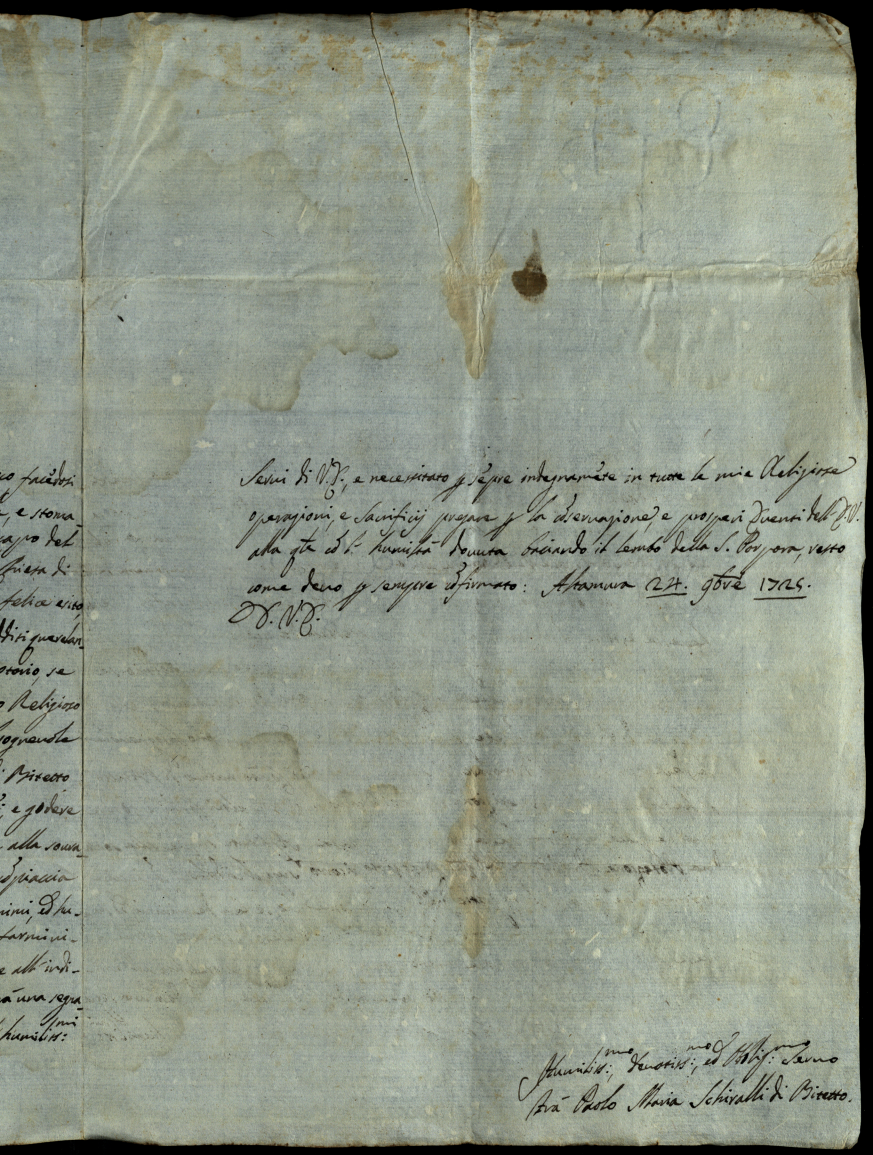 facēdosi
, e stoma-
capo del
felice esito,
se
Religioso
Bitetto
; e godere
alla sovra-
piaccia
ed hu-
e all' indi-
una segna-
humiliss:mi
Servi di V.E., e necessitato p sēpre indegnamēte in tutte le mie Religiose
operazioni, e Sacrificij pregare p la cōservazione, e prosperi eventi dell' E.V.
alla qle cō l' humiltà dovuta baciando il lembo della S. Porpora, resto
come devo p sempre cōfirmato: Altamura 24. 9bre 1725.
D. V.E.
Humiliss:mo, devotiss:mo, ed Oblig:mo Servo
Frà Paolo Maria Schiralli di Bitetto.